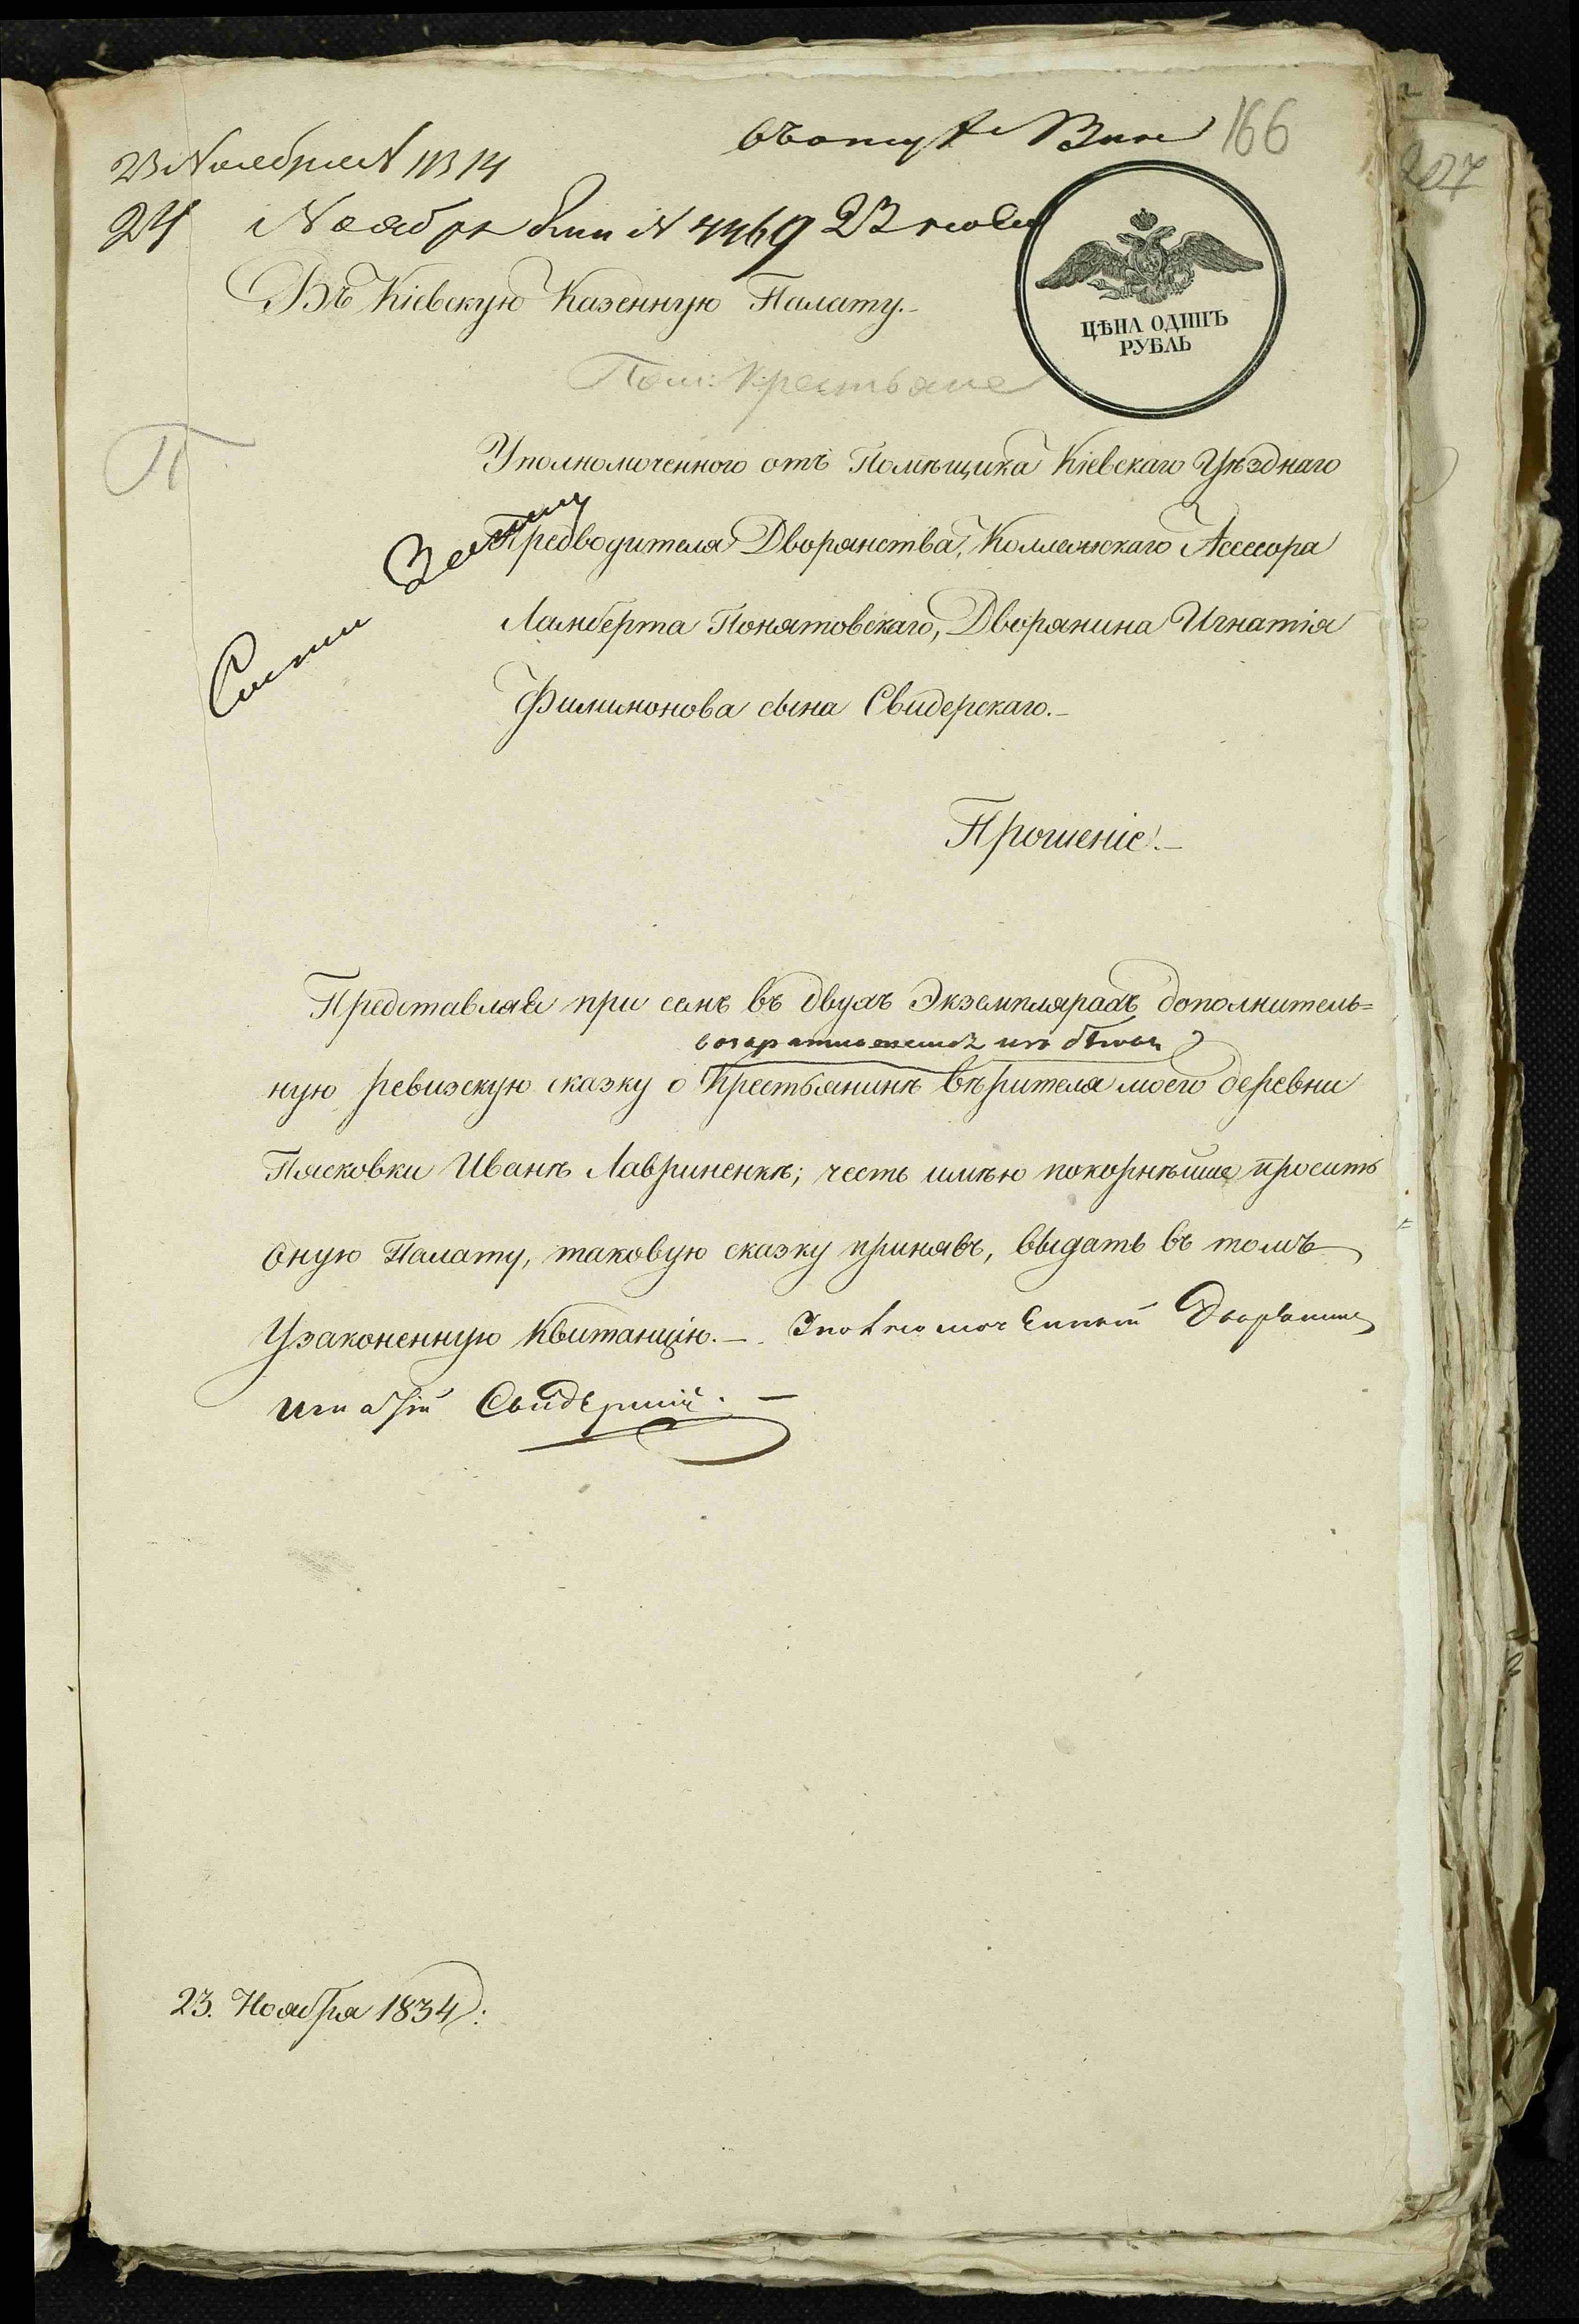 166
207
23 Ноября N 11314
24 Ноября N 4469 23
Въ Кіевскую Казенную Палату.-
ЦѢНА ОДИНЪ
РУБЛЬ
Пом: Крестьяне
П
Уполномоченного отъ Помѣщика Кіевскаго Уѣзднаго
Предводителя Дворянства, Коллежскаго Асессора
Ламберта Понятовскаго, Дворянина Игнатія
Филимонова сына Свидерскаго.-
Прошеніе!-
Представляя при семъ въ двухъ Экземплярахъ дополнитель=
возвратившемся изъ бѣговъ
ную ревизскую сказку о Крестьянинѣ вѣрителя моего деревни
Пясковки Иванѣ Лавриненкѣ; честь имѣю покорнѣйше просить
оную Палату, таковую сказку принявъ, выдать въ томъ
Узаконенную Квитанцію.- Уполномоченный Дворянинъ
Игнатій Свидерскій.-
23. Ноября 1834: